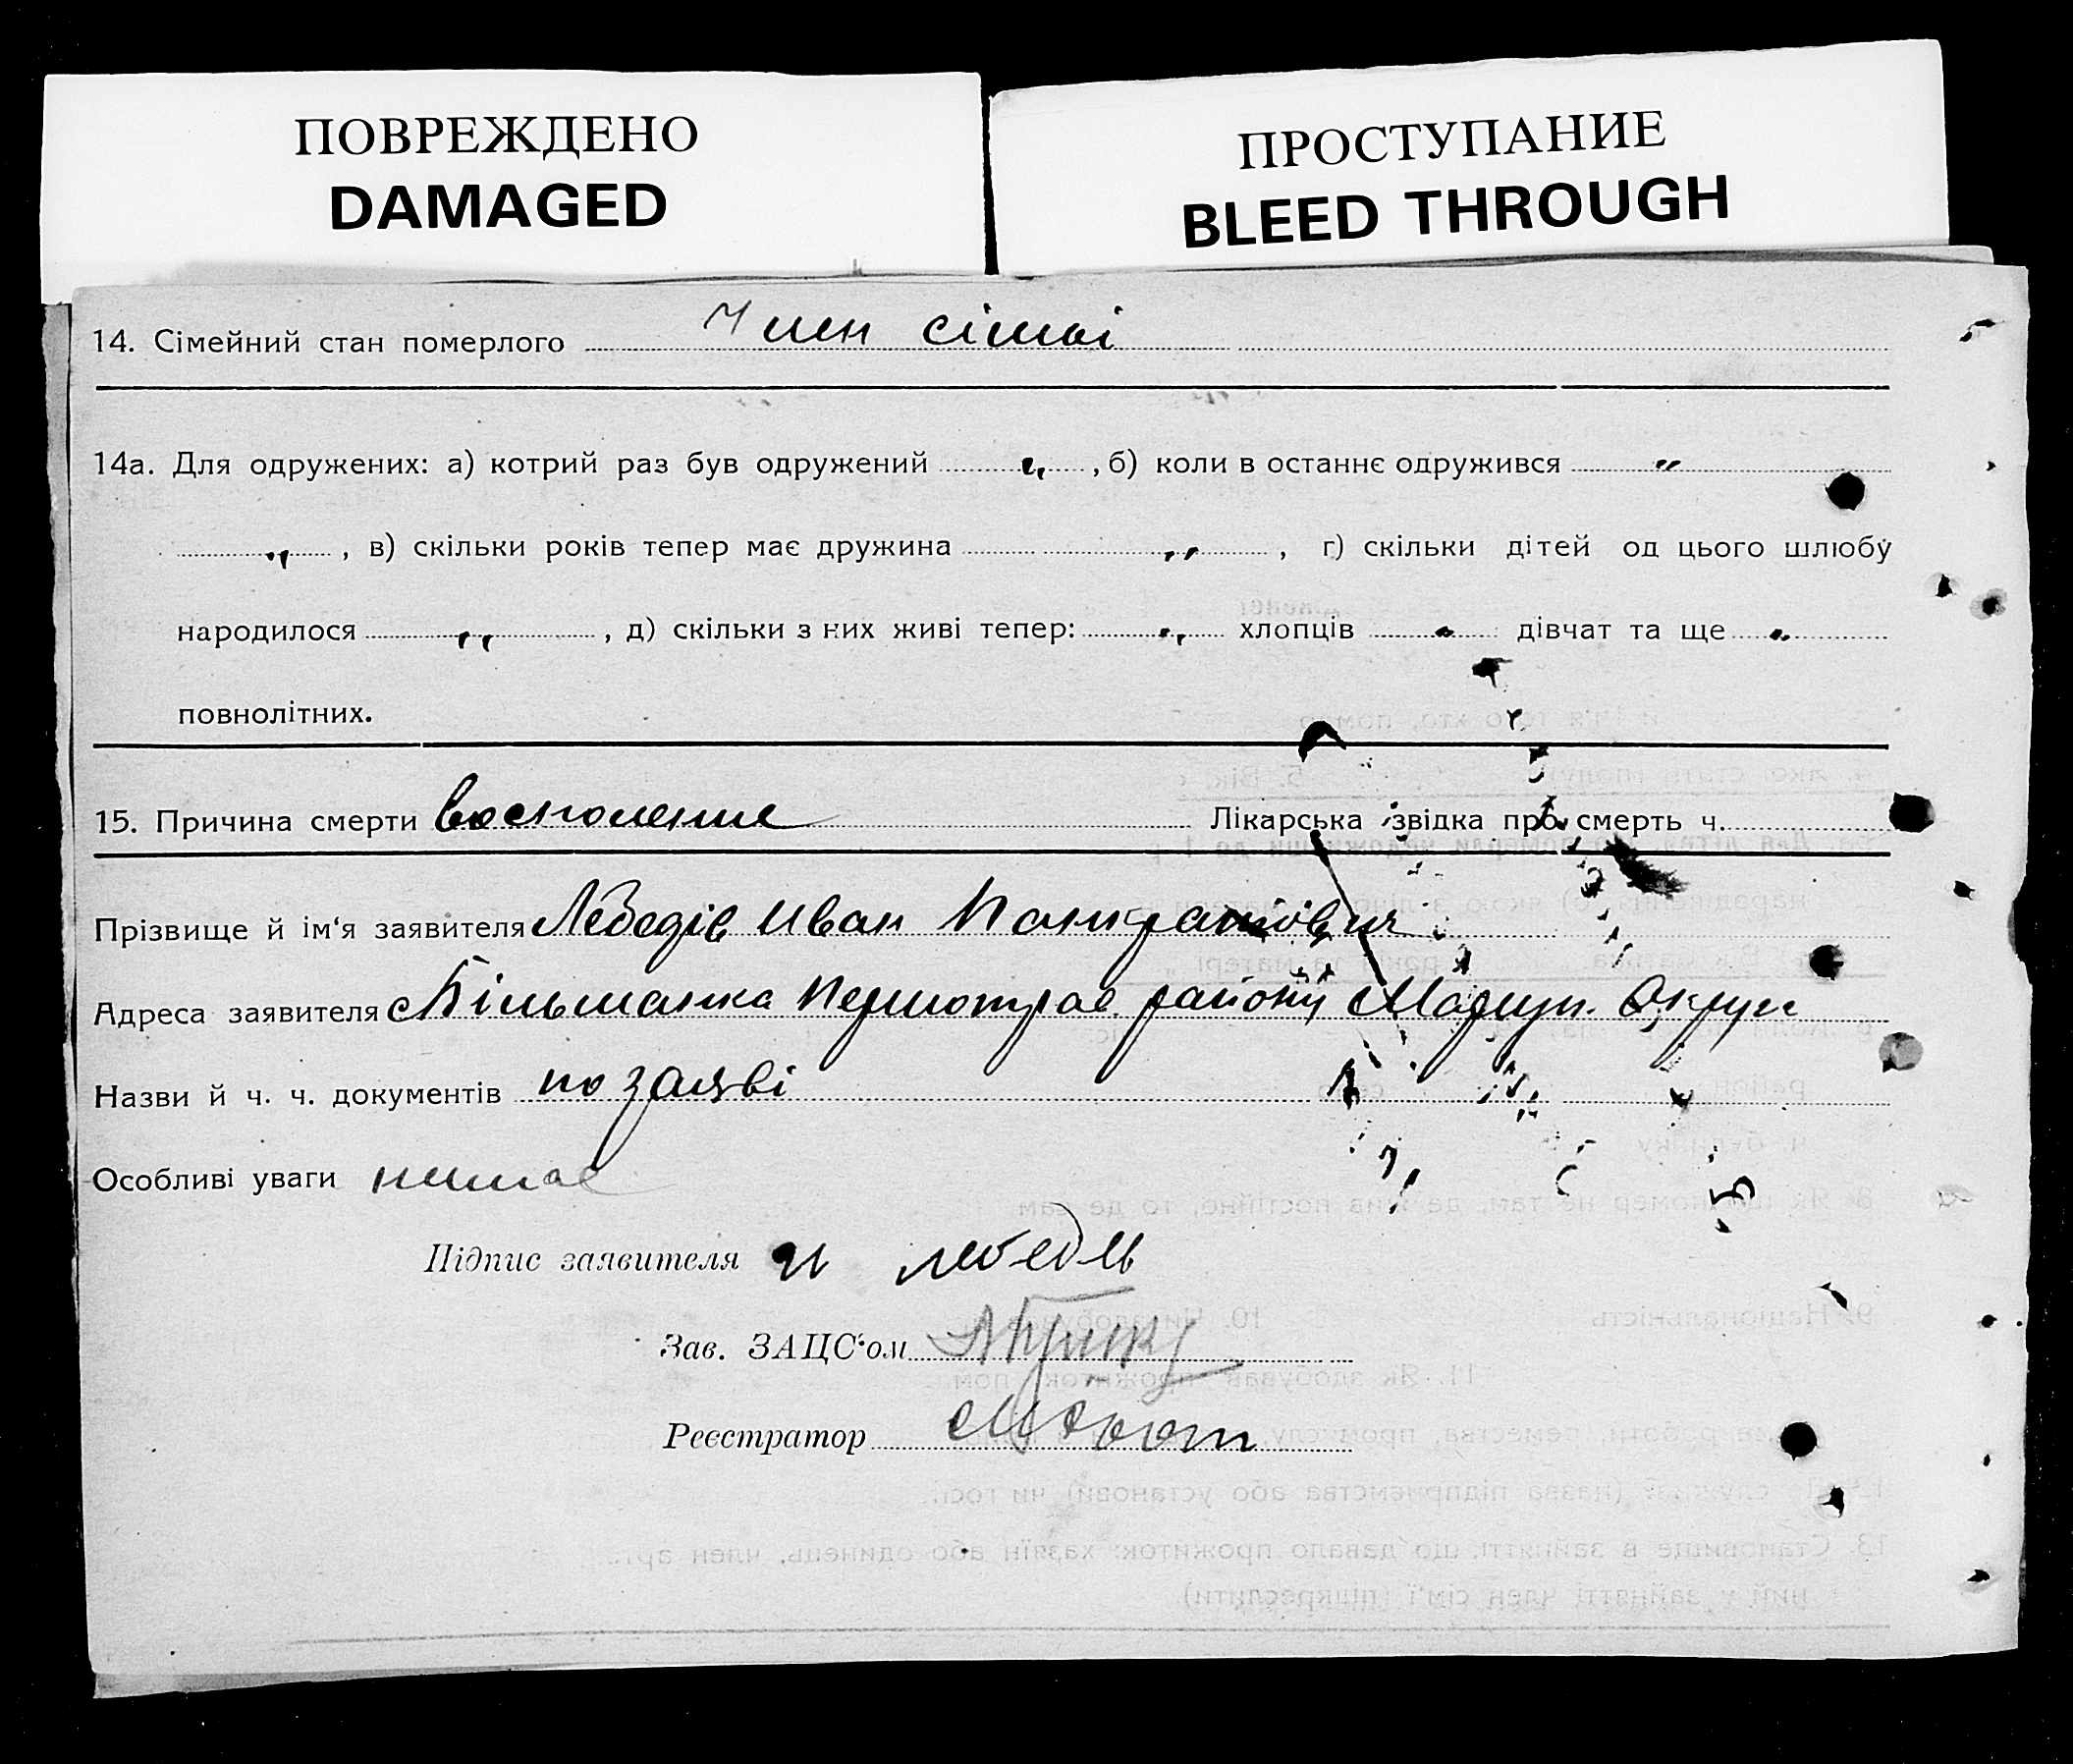 ПОВРЕЖДЕНО
DAMAGED
ПРОСТУПАНИЕ
BLEED THROUGH
14. Сімейний стан померлого Член сімї
14а. Для одружених: а) котрий раз був одружений „ , б) коли в останнє одружився „
„ , в) скільки років тепер має дружина „ , г) скільки дітей од цього шлюбу
народилося „ , д) скільки з них живі тепер: „ хлопців „ дівчат та ще „
повнолітних.
15. Причина смерти воспаление Лікарська звідка про смерть ч.
Прізвище й ім‘я заявителя Лебедів Иван Панкратович
Адреса заявителя с Більманка Першотрав. району Маріуп. Округи
Назви й ч. ч. документів по заяві
Особливі уваги немае
Підпис заявителя И лебедь
Зав. ЗАЦС‘ом
Реєстратор